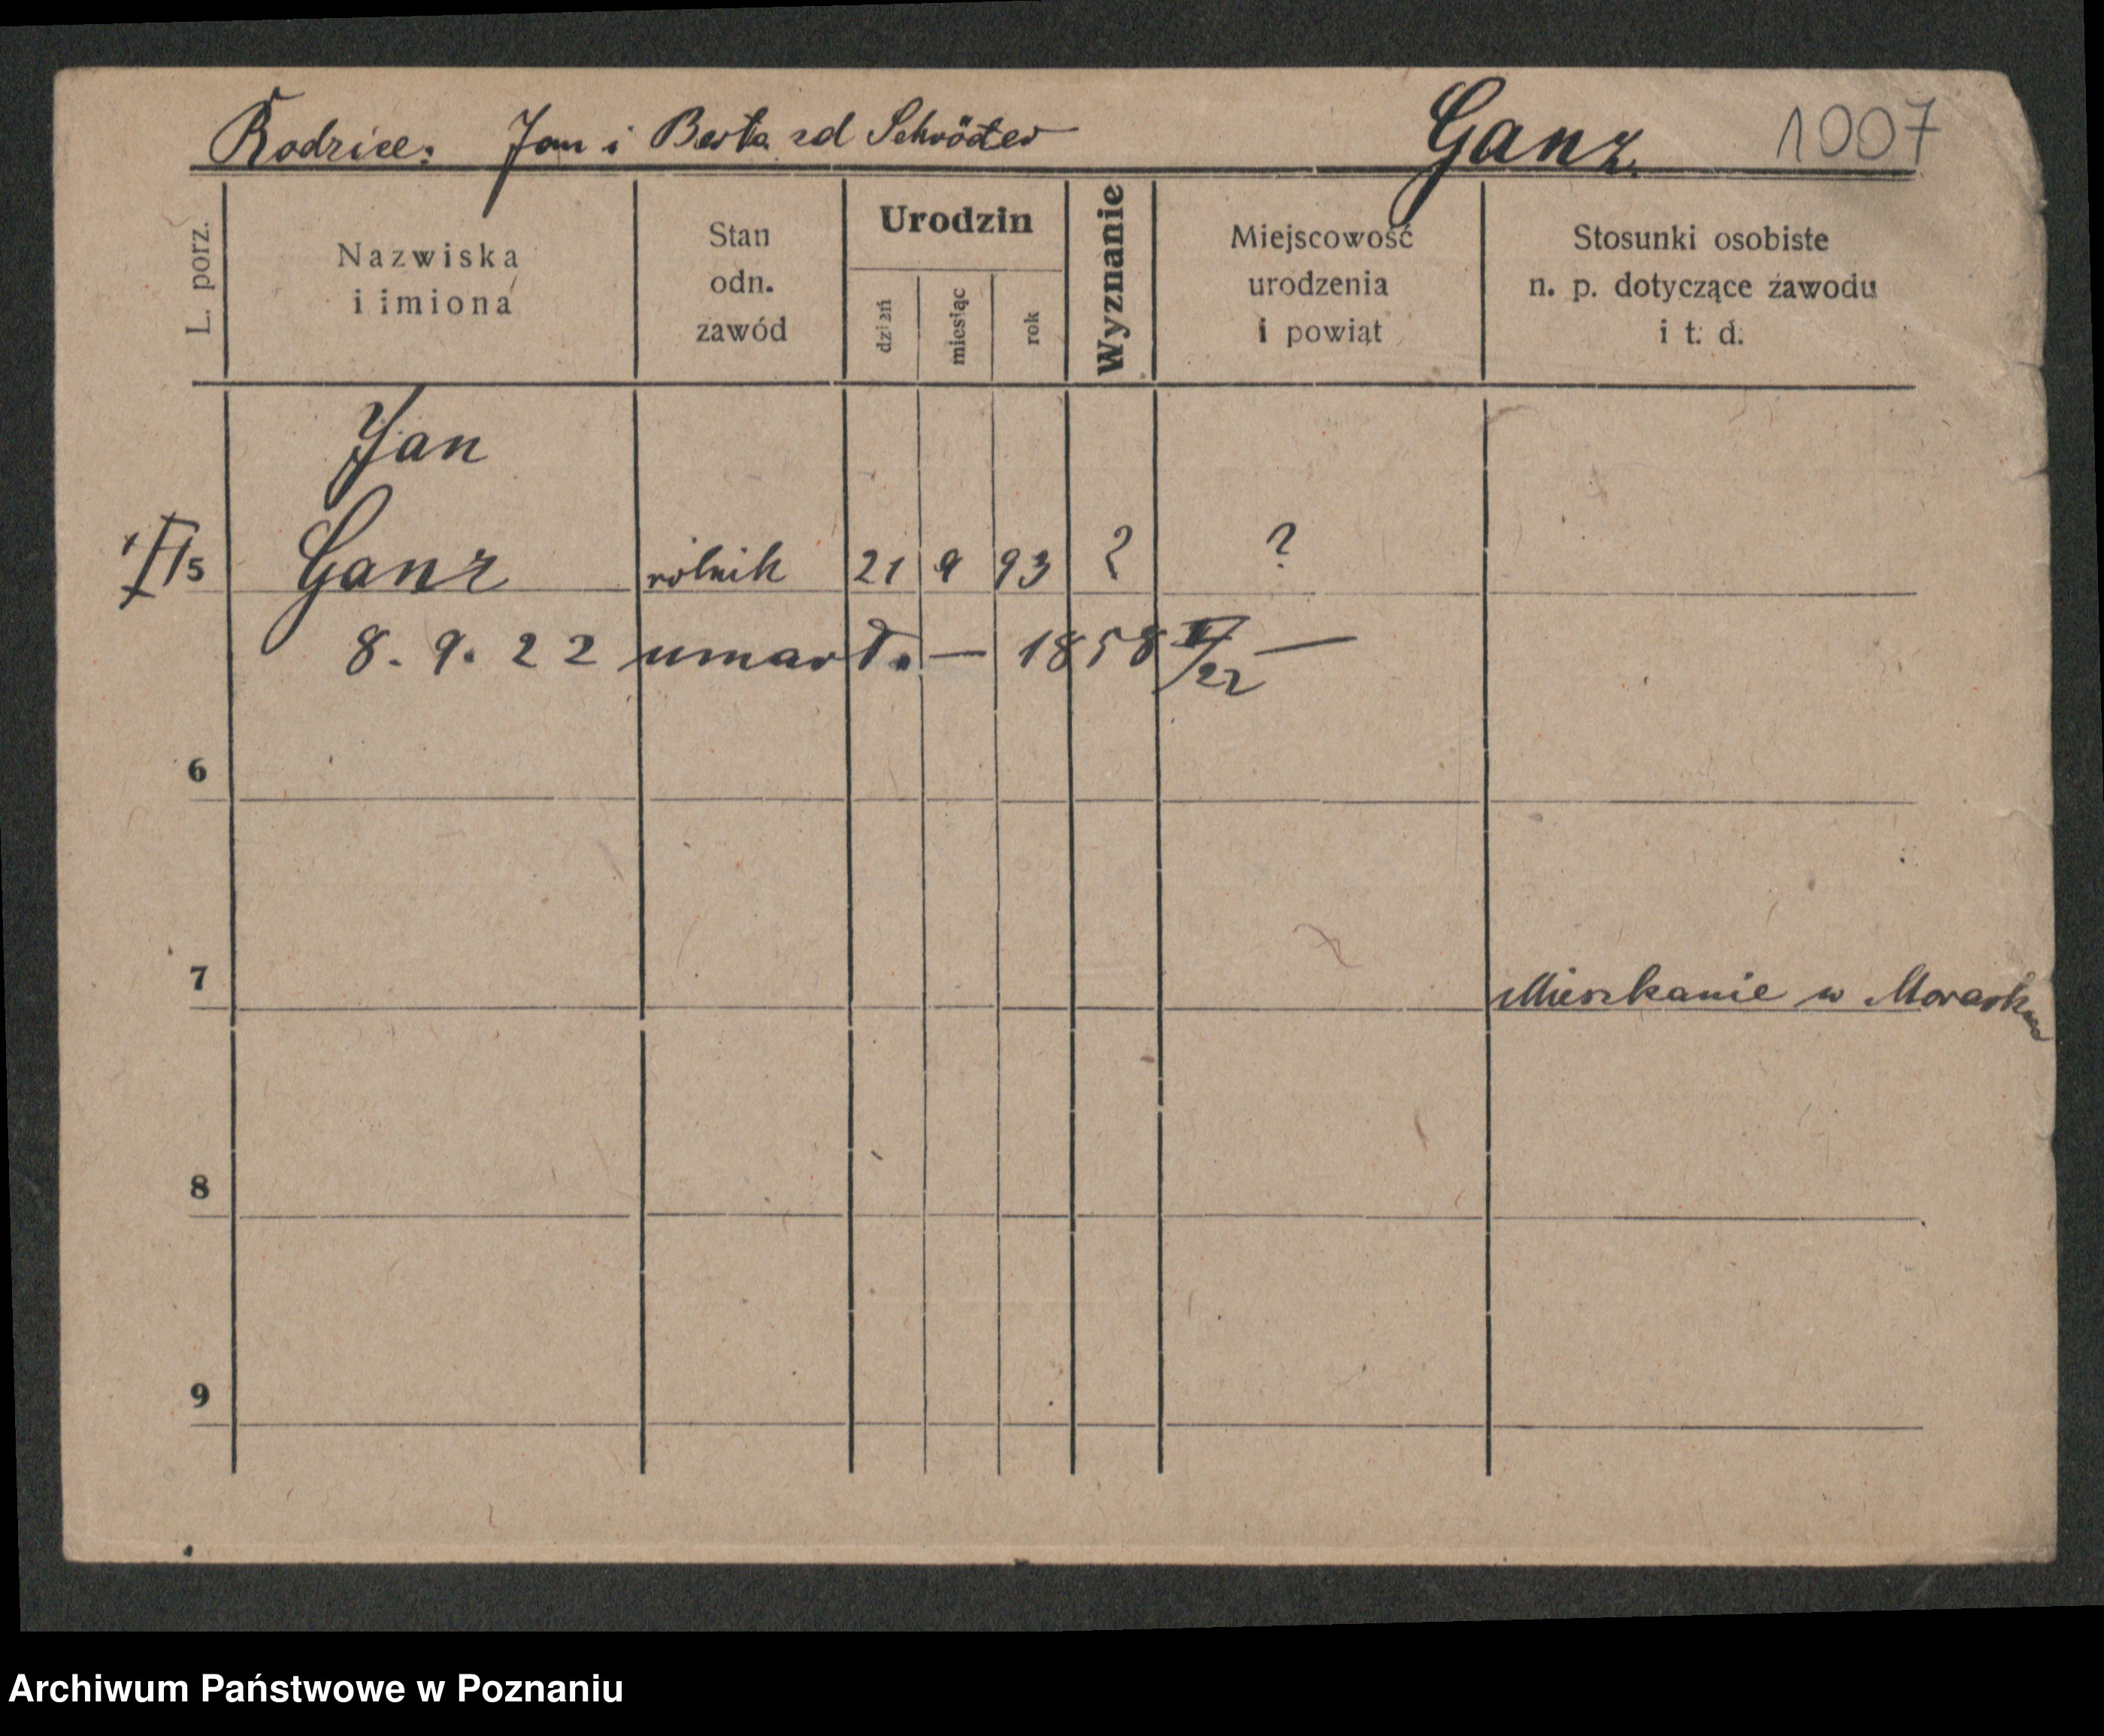 Rodzice: Jan i Berta zd Schröder Ganz 1007
L. porz.
Nazwiska
i imiona
Stan
odn.
zawód
Urodzin
dzień
miesiąc
rok
Wyznanie
Miejscowość
urodzenia
i powiat
Stosunki osobiste
n. p. dotyczące zawodu
i t. d.
Jan
5 Ganz rolnik 21 9 93 ? ?
8. 9. 22 umarł. — 1858 II/22 —
6
7 Mieszkanie w Morasku
8
9
Archiwum Państwowe w Poznaniu